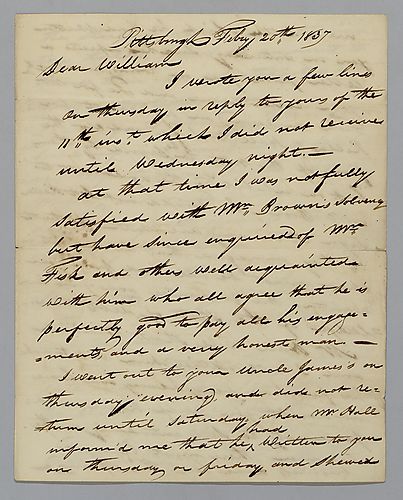 Pittsburgh Feby 20th 1837
Dear William
I wrote you a few lines
on thursday in reply to yours of the
11th inst. which I did not receive
until Wednesday night. —
at that time I was not fully
satisfied with Mr. Brown's solvency
but have since enquired of Mr.
Fisk and others well acquainted
with him who all agree that he is
perfectly good to pay all his engage-
-ments, and a very honest man. —
I went out to your Uncle James's on
thursday evening, and did not re-
turn until Saturday, when Mr Hall
inform'd me that he had written to you
on thursday or friday and shewed